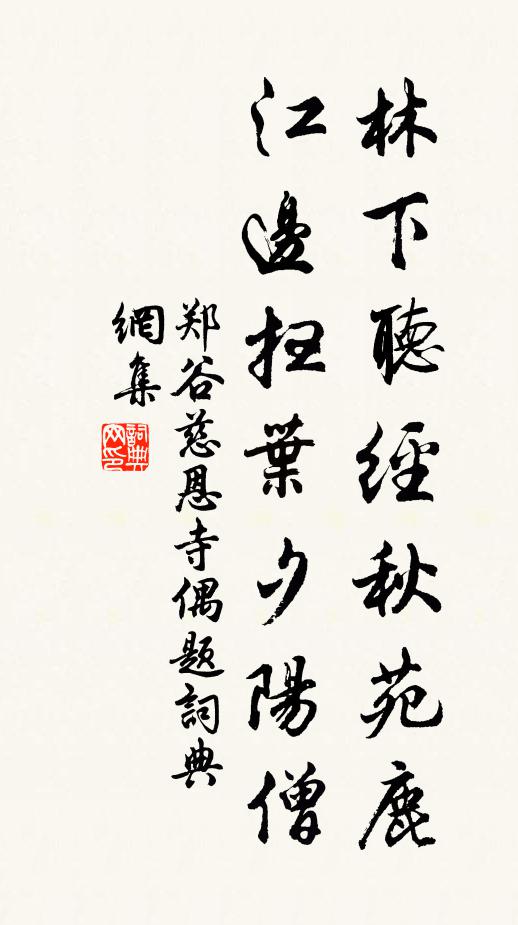 林下聽經秋苑鹿
江邊掃葉夕陽僧
郑谷慈恩寺偶題詞典
網集
詞典
网印